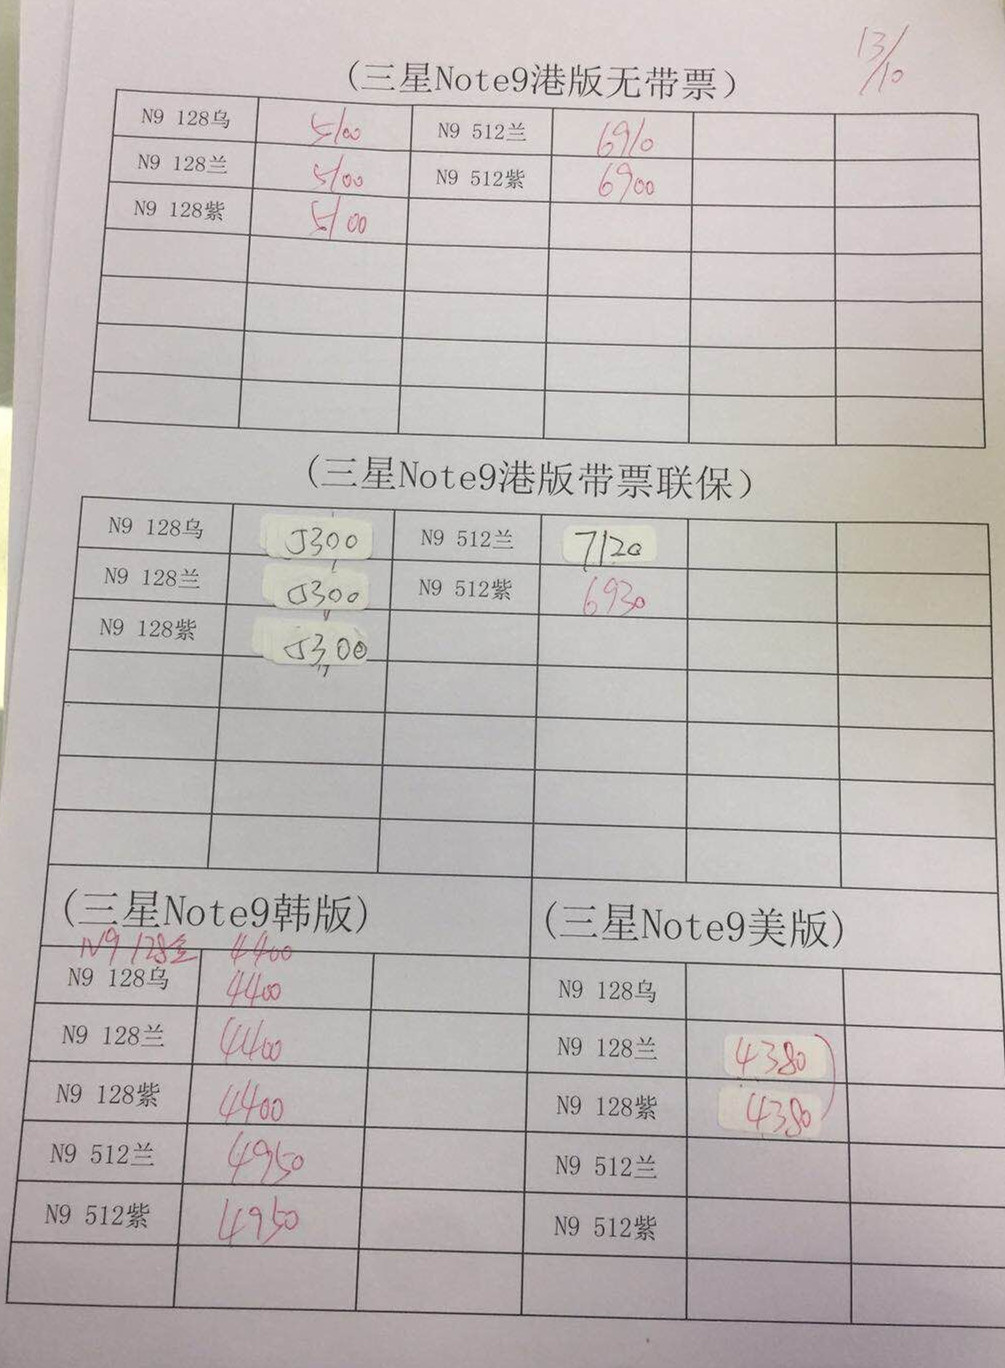 13/10
(三星Note9港版无带票)
N9 128乌 5100 N9 512兰 6910
N9 128兰 5100 N9 512紫 6900
N9 128紫 5100
(三星Note9港版带票联保)
N9 128乌 5300 N9 512兰 7120
N9 128兰 5300 N9 512紫 6930
N9 128紫 5300
(三星Note9韩版) (三星Note9美版)
N9 128金 4400
N9 128乌 4400 N9 128乌
N9 128兰 4400 N9 128兰 4380
N9 128紫 4400 N9 128紫 4380
N9 512兰 4950 N9 512兰
N9 512紫 4950 N9 512紫